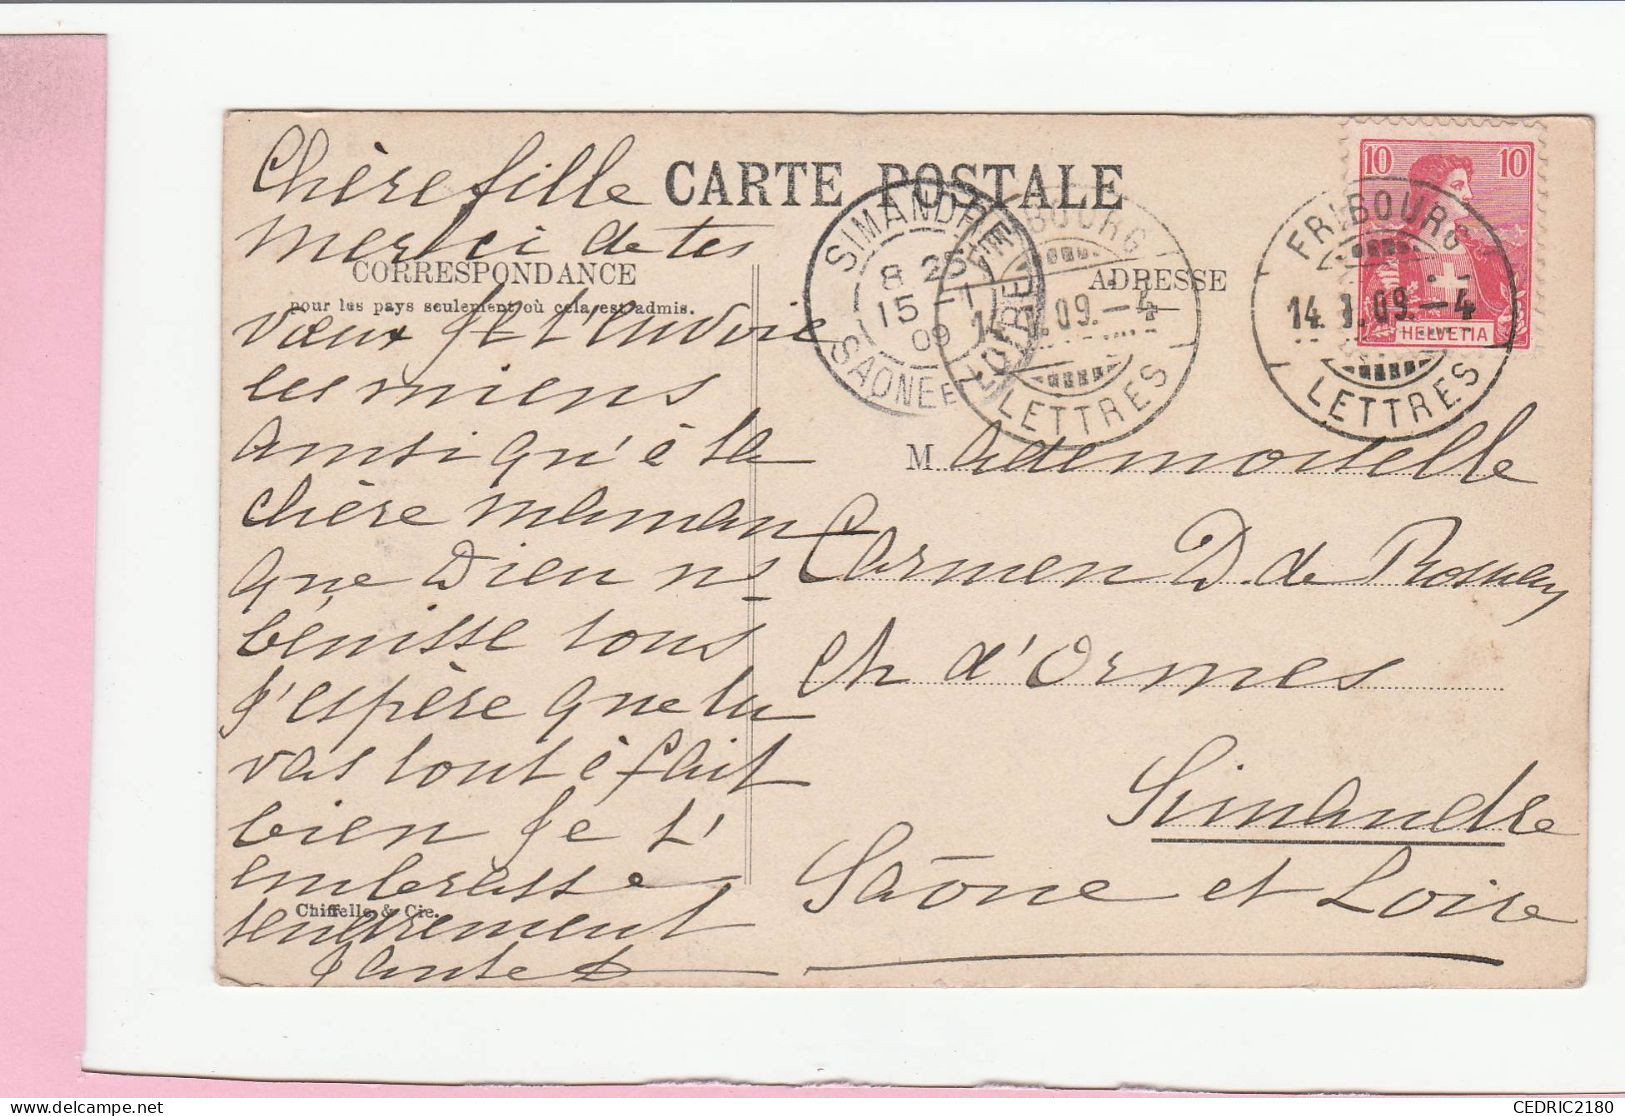 CARTE POSTALE
CORRESPONDANCE
pour les pays seulement où cela est admis.
ADRESSE
Chère fille
Merci de tes
vœux Je t'envoie
les miens
ainsi qu'à ta
chère maman
que Dieu ns
bénisse tous
J'espère que tu
vas tout à fait
bien Je t'
embrasse
tendrement
Chiffelle & Cie.
SIMANDRE
8 25
15 -1
09
SAONE ET LOIRE
FRIBOURG
14.I.09.-4
LETTRES
10 10
HELVETIA
FRIBOURG
14.I.09.-4
LETTRES
Mademoiselle
Carmen D. de Rosnay
Ch d'Ormes
Simandre
Saône et Loire
CEDRIC2180